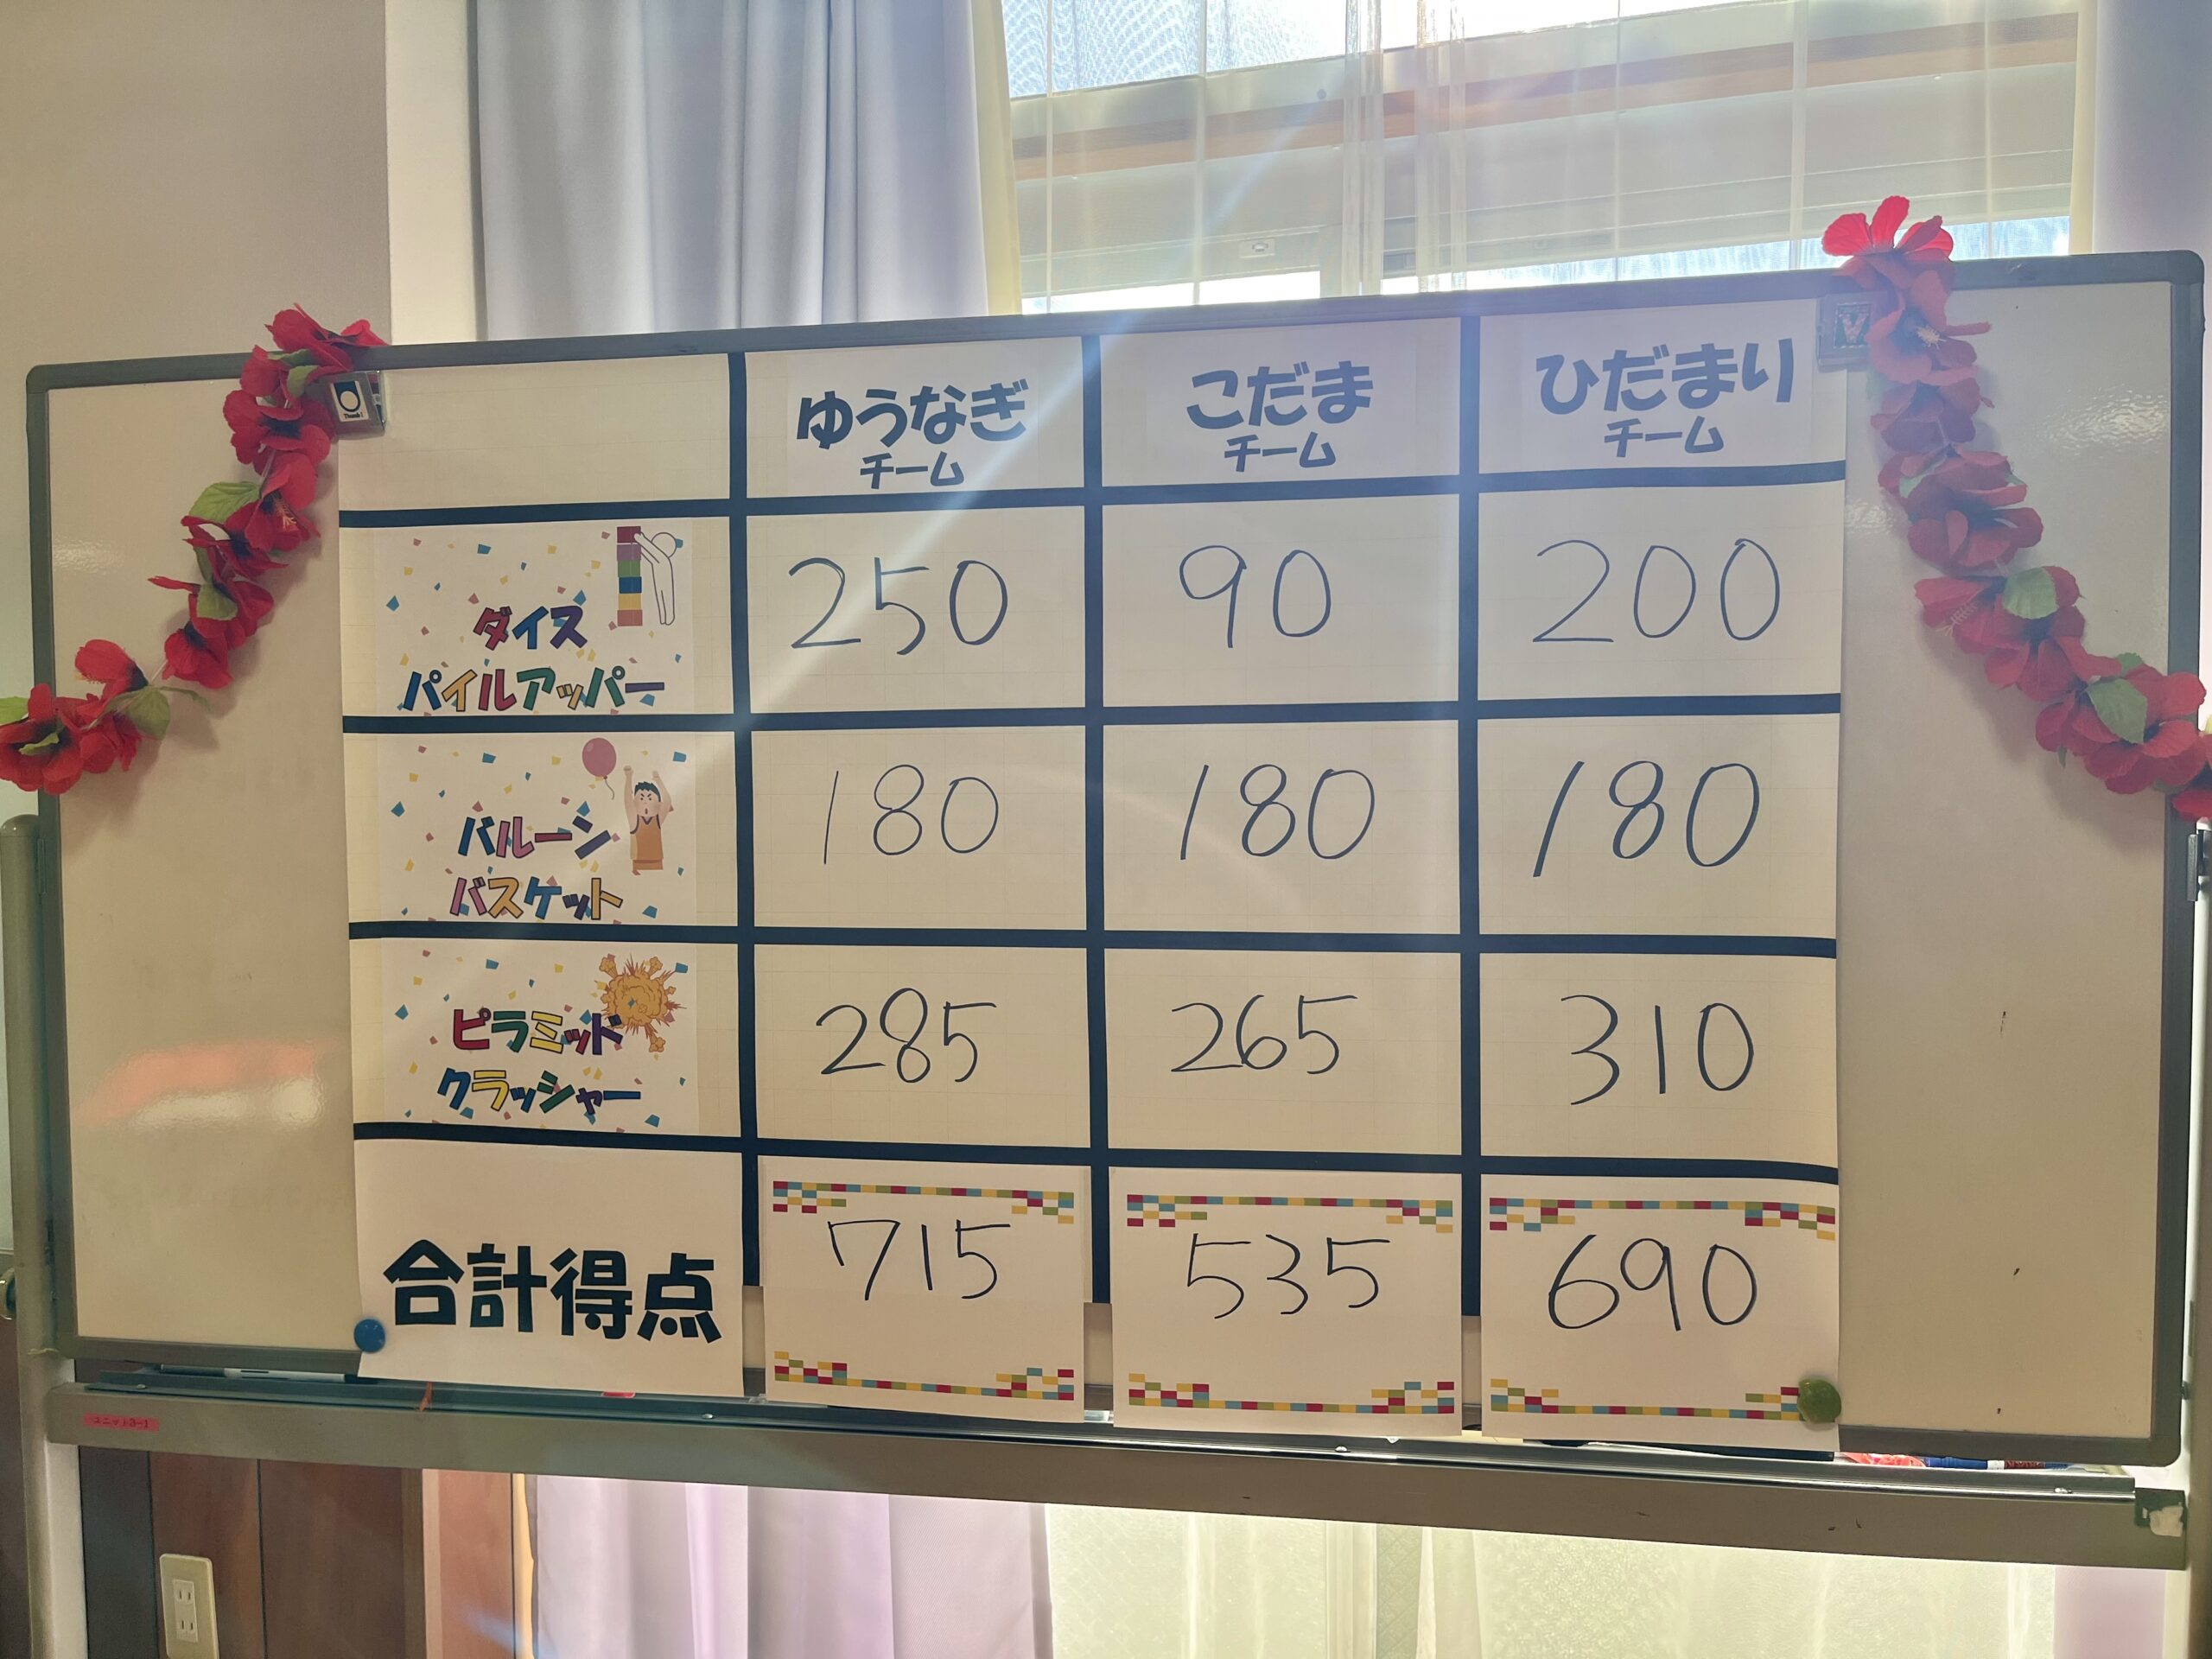 ゆうなぎ
チーム
こだま
チーム
ひだまり
チーム
ダイス
パイルアッパー
250
90
200
バルーン
バスケット
180
180
180
ピラミッド
クラッシャー
285
265
310
合計得点
715
535
690
ユニット3-1